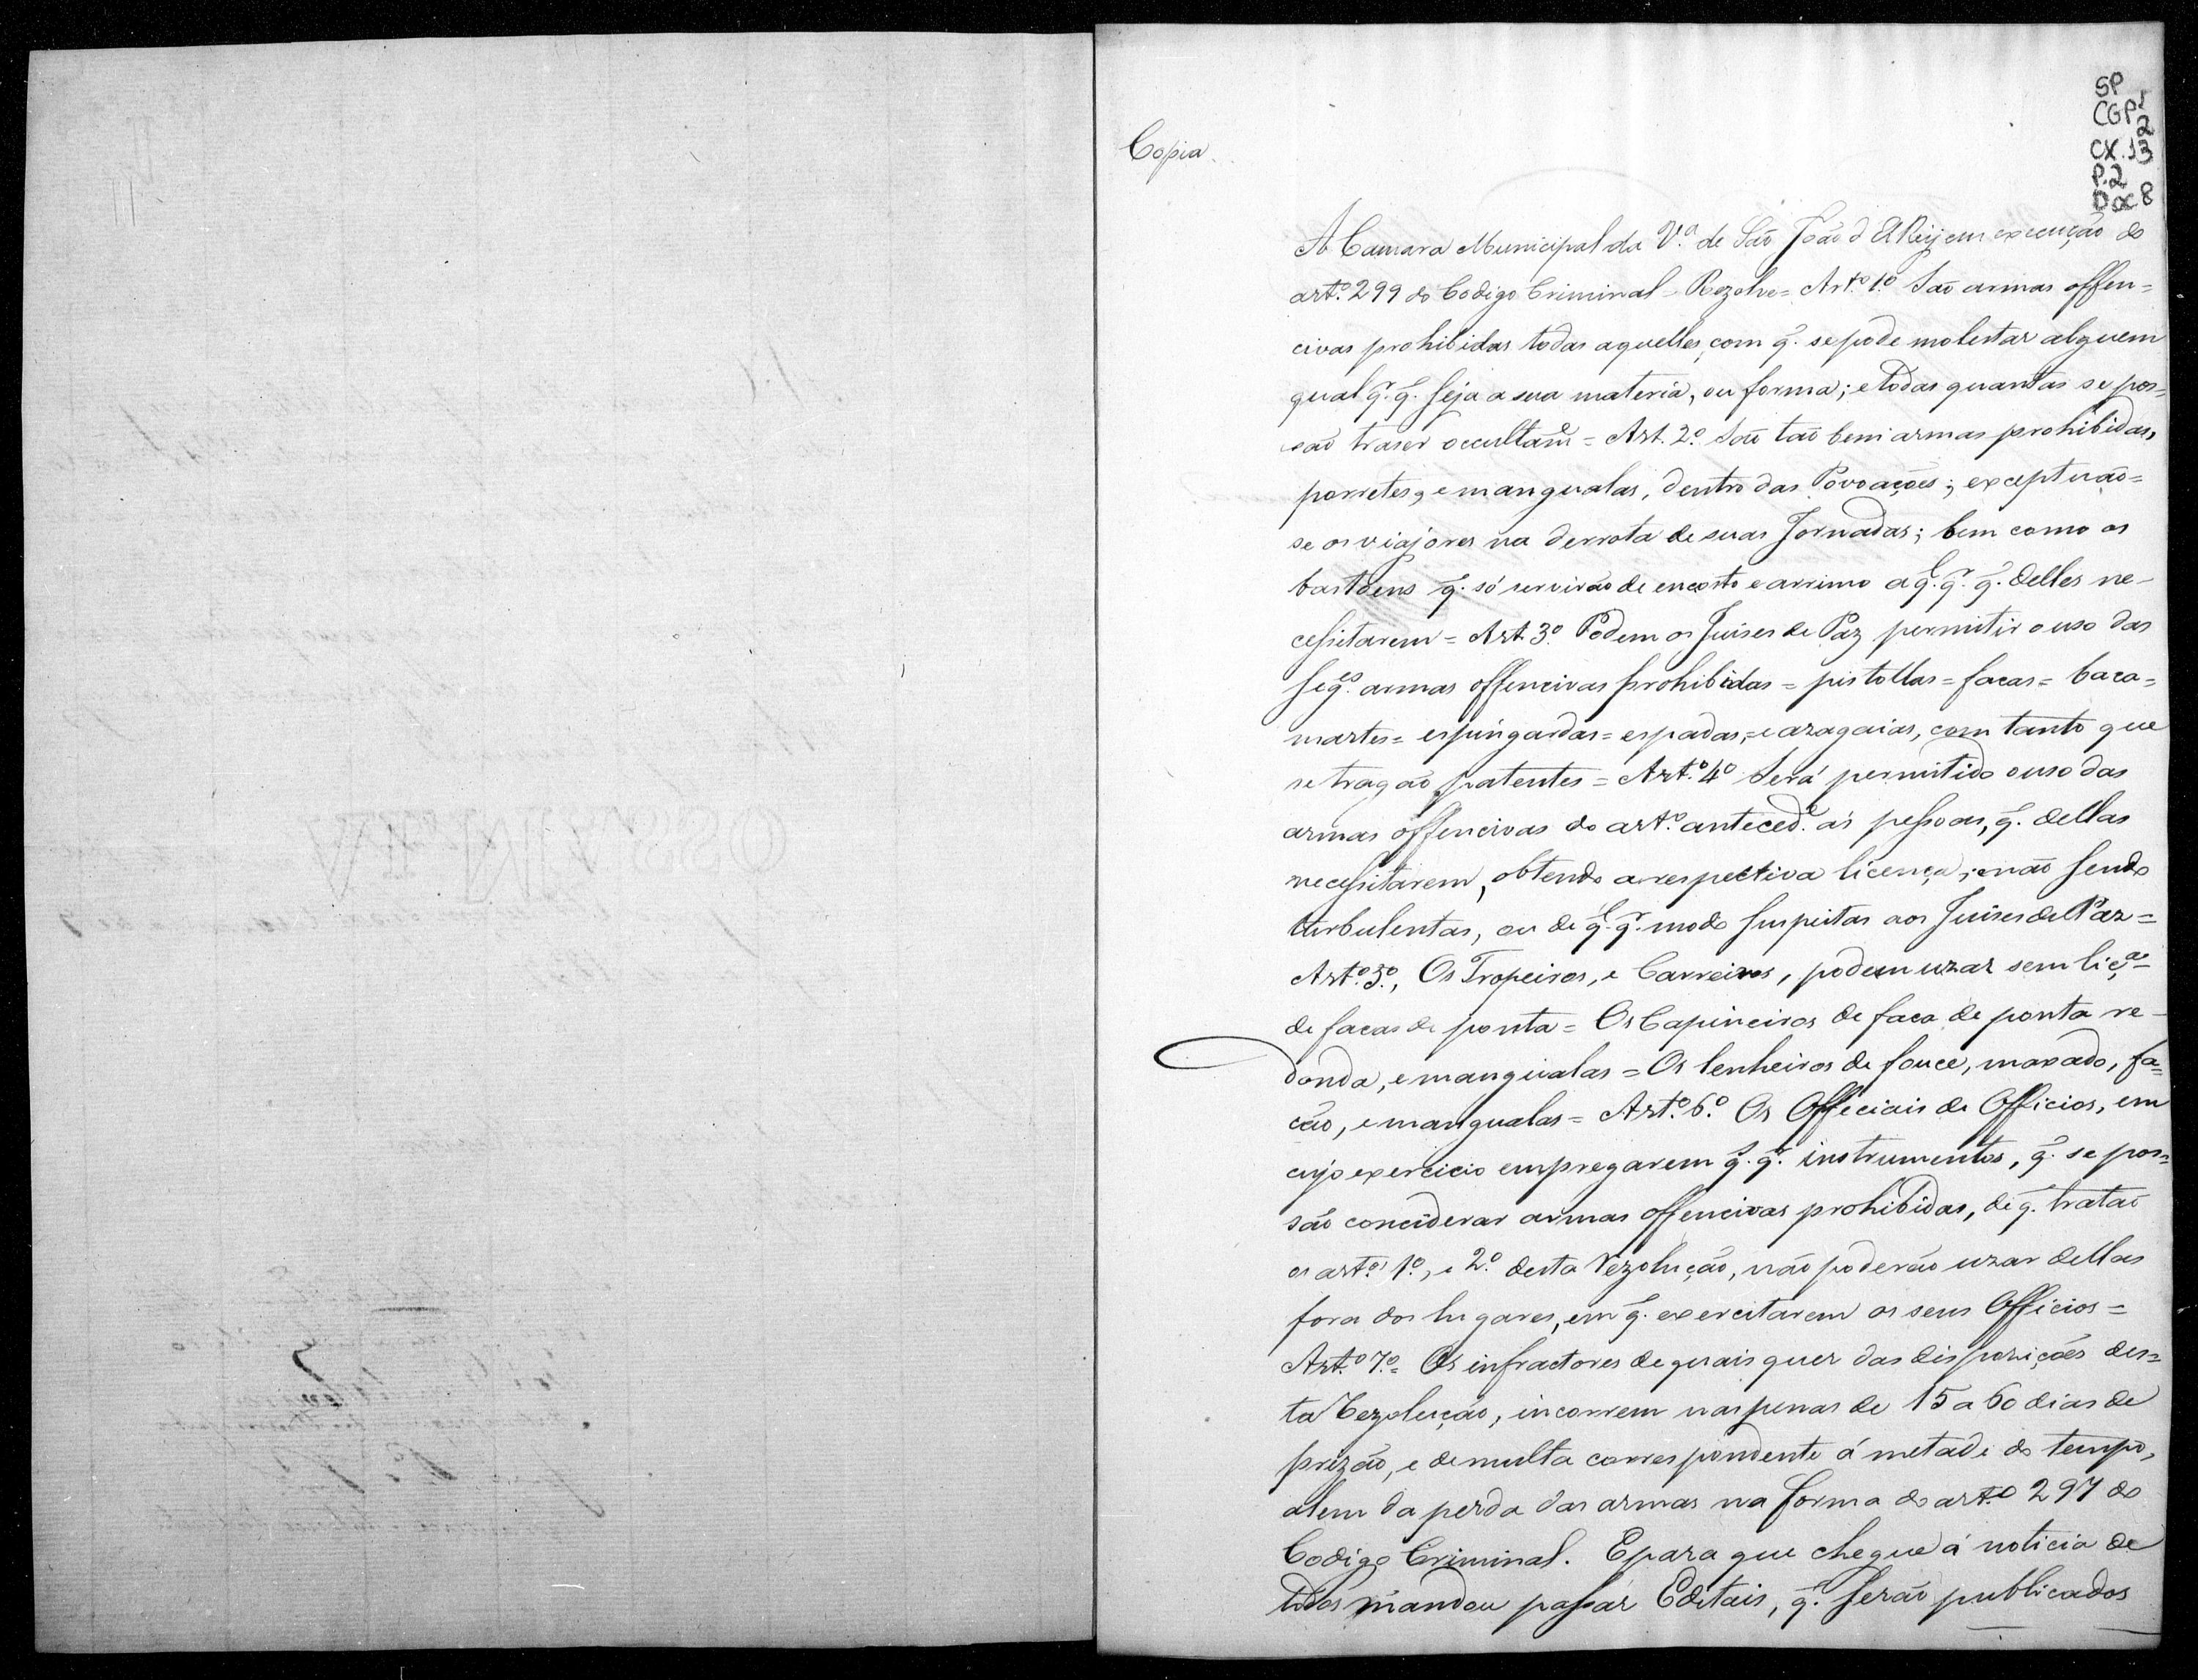 SP
CGP1
2
CX.13
P.2
Doc 8
Copia.
A Camara Municipal da V.ª de São João d'ElRey em execução do
art.º 299 do Codigo Criminal = Rezolve = Art.º 1.º São armas offen=
civas prohibidas todas aquellas, com q̃. se pode molestar alguem
qual q.r q̃. seja a sua materia, ou forma; e todas quantas se pos=
são traser occultam.e = Art. 2.º São tão bem armas prohibidas,
porretes, e mangualas, dentro das Povoações; exceptuão=
se os viajores na derrota de suas Jornadas; bem como os
bastoens q̃. só servirão de encosto e arrimo a q.l q.r q̃. delles ne-
cessitarem = Art. 3.º Podem os Juises de Paz permitir o uso das
seg.es armas offencivas prohibidas = pistollas = facas = baca=
martes = espingardas = espadas, = e azagaias, com tanto que
se tragão patentes = Art.º 4.º Será permitido o uso das
armas offencivas do art.º anteced.e ás pessoas, q̃. dellas
necessitarem, obtendo a respectiva licença, e não sendo
turbulentas, ou de q.l q.r modo suspeitas aos Juises de Paz =
Art.º 5.º, Os Tropeiros, e Carreiros, podem uzar sem liç.ª =
de facas de ponta = Os Capineiros de faca de ponta re-
donda, e mangualas = Os lenheiros de fouce, maxado, fa=
cão, e mangualas = Art.º 6.º Os Offeciais de Officios, em
cujo exercicio empregarem q.l q.r instrumentos, q̃. se pos=
são conciderar armas offencivas prohibidas, de q̃. tratão
os art.os 1.º, e 2.º desta Rezolução, não poderão uzar dellas
fora dos lugares, em q̃. exercitarem os seus Officios =
Art.º 7.º = Os infractores de quais quer das disposições des=
ta Rezolução, incorrem nas penas de 15 a 60 dias de
prizão, e de multa correspondente á metade do tempo,
alem da perda das armas na forma do art.º 297 do
Codigo Criminal. E para que chegue á noticia de
todos mandou passar Editais, q̃. serão publicados